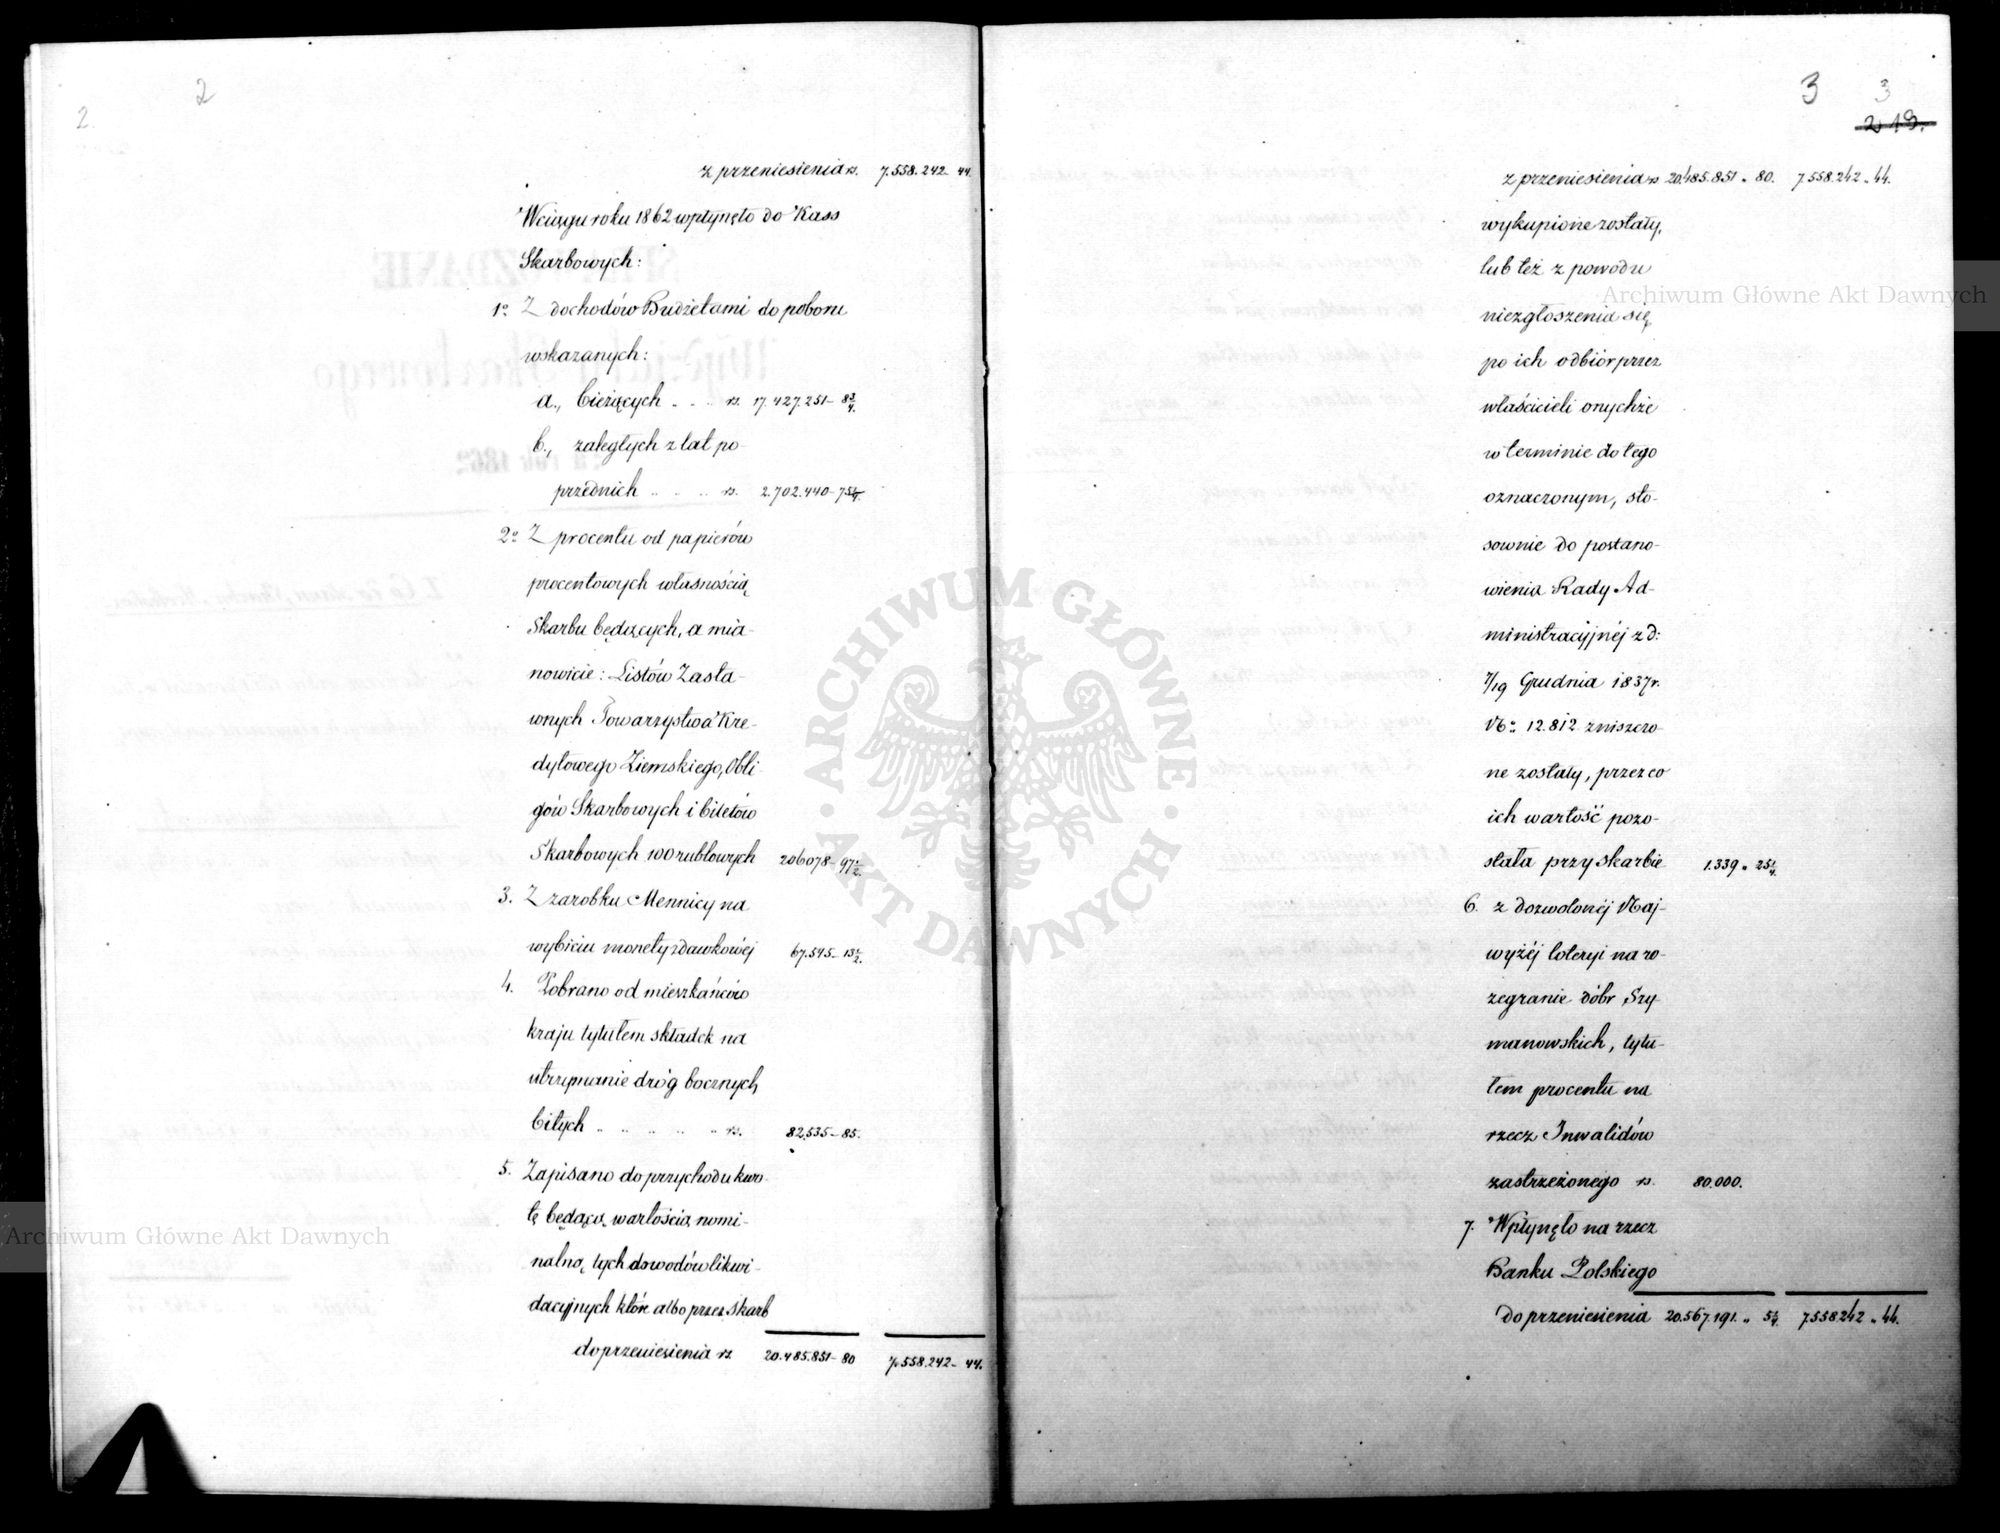 2
2.
z przeniesienia rs. 7.558.242 - 44.
Wciągu roku 1862 wpłynęło do Kass
Skarbowych:
1o Z dochodów Budżetami do poboru
wskazanych:
a., bieżących . . . rs. 17.427.251 - 8 3/4.
b., zaległych z lat po-
przednich . . . . rs. 2.702.440 - 75 1/4.
2o Z procentu od papierów
procentowych własnością
Skarbu będących, a mia-
nowicie: Listów Zasta-
wnych Towarzystwa Kre-
dytowego Ziemskiego, Obli-
gów Skarbowych i biletów
Skarbowych 100 rublowych 206078 - 97 1/2.
3. Z zarobku Mennicy na
wybiciu monety zdawkowéj 67.545 - 13 1/2.
4. Pobrano od mieszkańców
kraju tytułem składek na
utrzymanie dróg bocznych,
bitych . . . . . rs. 82.535 - 85.
5. Zapisano do przychodu kwo-
tę będącą wartością nomi-
nalną tych dowodów likwi-
dacyjnych które albo przez Skarb
do przeniesienia rs. 20.485.851 - 80 7.558.242 - 44.
3
3
213.
z przeniesienia rs 20.485.851 „ 80. 7.558.242 „ 44.
wykupione zostały,
lub też z powodu
niezgłoszenia się
po ich odbiór przez
właścicieli onychże
w terminie do tego
oznaczonym, sto-
sownie do postano-
wienia Rady Ad-
ministracyjnéj z d:
7/19 Grudnia 1837 r.
No 12.812 zniszczo-
ne zostały, przez co
ich wartość pozo-
stała przy skarbie 1.339 „ 25 1/4.
6. z dozwolonéj Naj-
wyżéj loteryi na ro-
zegranie dóbr Szy-
manowskich, tytu-
łem procentu na
rzecz Inwalidów
zastrzeżonego rs. 80.000.
7. Wpłynęło na rzecz
Banku Polskiego
do przeniesienia 20.567.191. „ 5 1/4. 7.558.242 „ 44.
Archiwum Główne Akt Dawnych
Archiwum Główne Akt Dawnych
ARCHIWUM GŁÓWNE AKT DAWNYCH